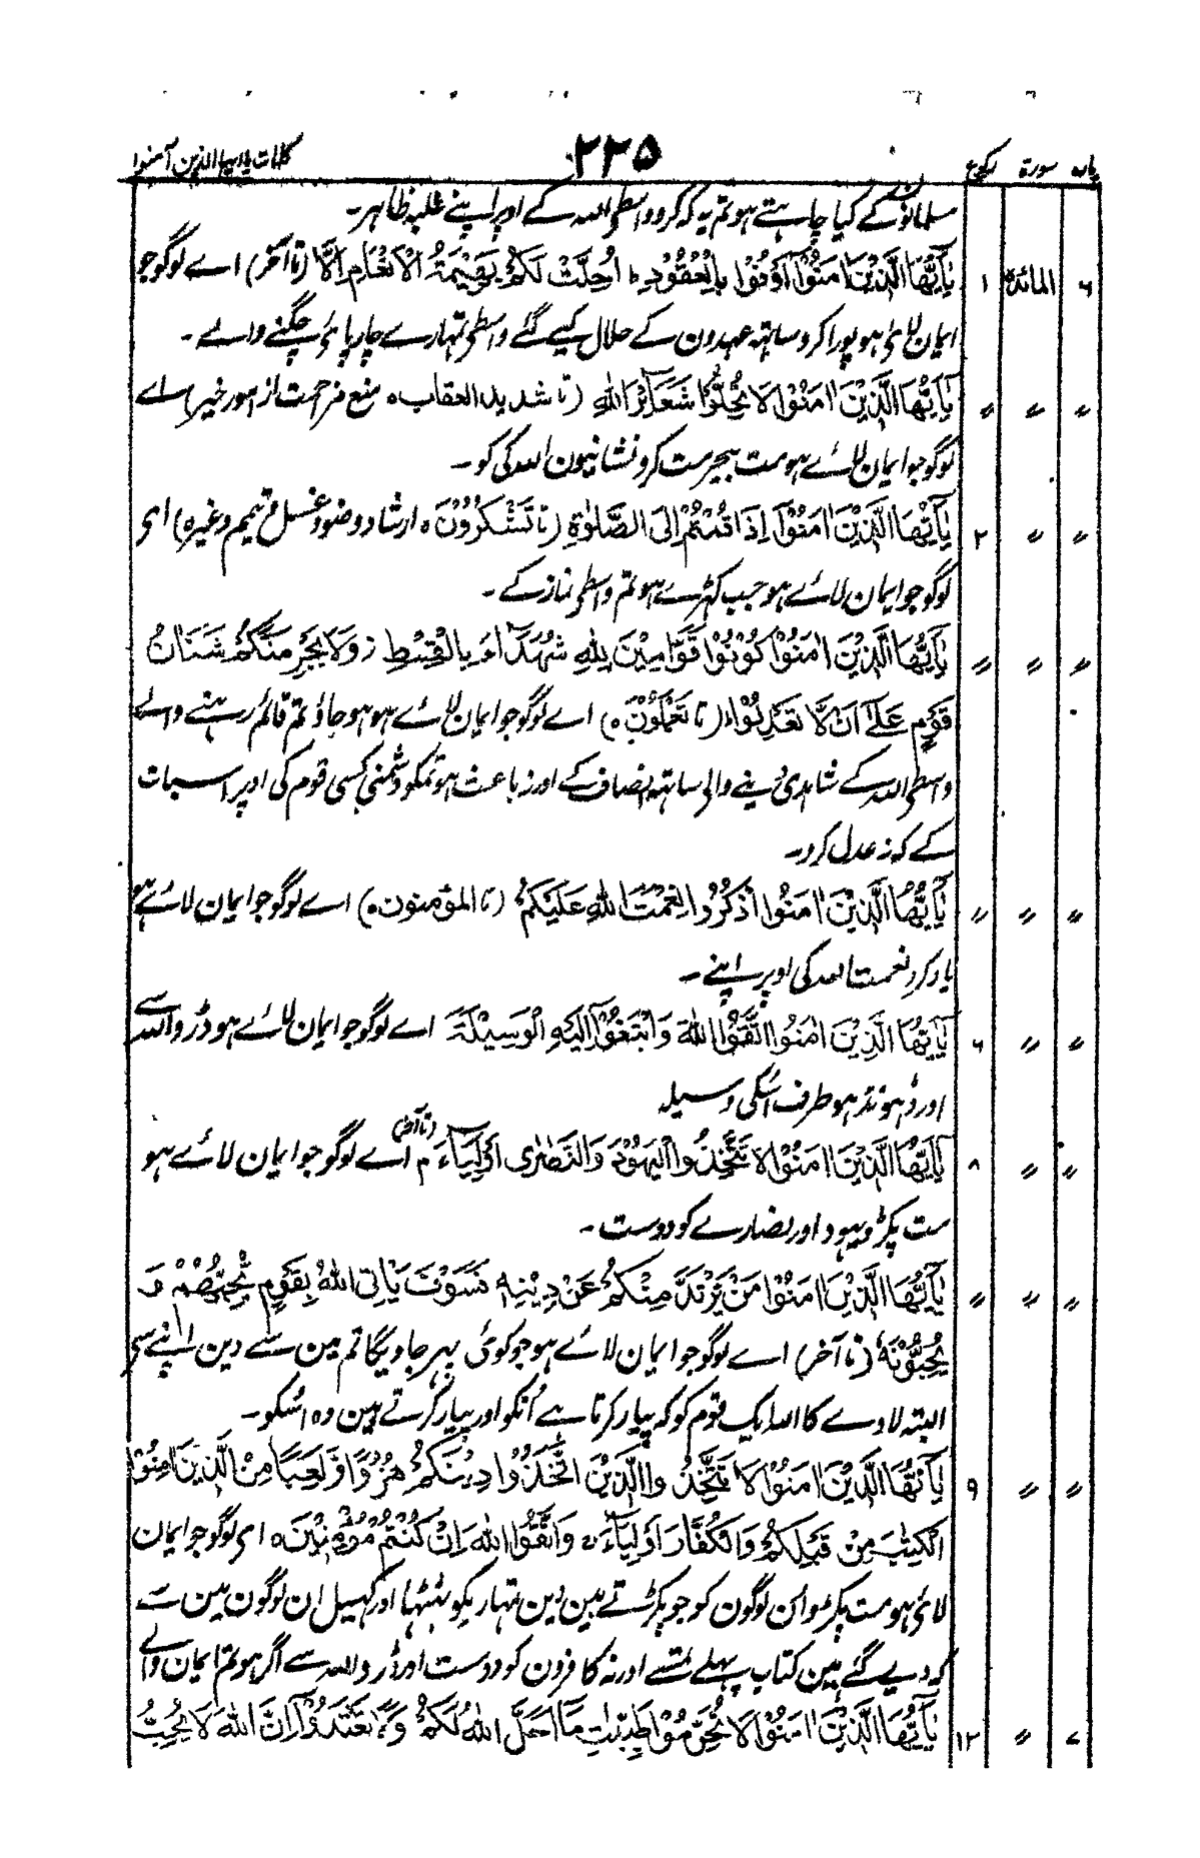 پارہ سورۃ رکوع ۲۲۵ کلمات یا ایہا الذین آمنوا
مسلمانوں کے کیا چاہتے ہو تم یہ کہ کرو واسطے اللہ کے اوپر اپنے غلبہ ظاہر۔
۶ المائدہ ۱ یٰۤاَیُّهَا الَّذِیْنَ اٰمَنُوْۤا اَوْفُوْا بِالْعُقُوْدِ ؕ اُحِلَّتْ لَكُمْ بَهِیْمَةُ الْاَنْعَامِ اِلَّا (تا آخر) اے لوگو جو
ایمان لائ ہو پورا کرو ساتہہ عہدون کے حلال کیے گئے واسطے تمہارے چارپائ چگنے والے۔
〃 〃 〃 یٰۤاَیُّهَا الَّذِیْنَ اٰمَنُوْا لَا تُحِلُّوْا شَعَآئِرَ اللّٰهِ (تا شدید العقاب ہ منع مزاحمت از امور خیر) اے
لوگو جو ایمان لائے ہو مت بیحرمت کرو نشانیون اللہ کی کو۔
〃 〃 ۲ یٰۤاَیُّهَا الَّذِیْنَ اٰمَنُوْۤا اِذَا قُمْتُمْ اِلَی الصَّلٰوةِ (تا تَشْكُرُوْنَ ہ ارشاد وضو و غسل و تیمم وغیرہ) ای
لوگو جو ایمان لائے ہو جب کہڑے ہو تم واسطے نماز کے۔
〃 〃 〃 یٰۤاَیُّهَا الَّذِیْنَ اٰمَنُوْا كُوْنُوْا قَوّٰمِیْنَ لِلّٰهِ شُهَدَآءَ بِالْقِسْطِ ز وَلَا یَجْرِمَنَّكُمْ شَنَاٰنُ
قَوْمٍ عَلٰۤی اَنْ لَّا تَعْدِلُوْا ؕ (تا تَعْمَلُوْنَ ہ) اے لوگو جو ایمان لائے ہو ہو جاؤ تم قائم رہنے والے
واسطے اللہ کے شاہدی دینے والی ساتہہ انصاف کے اور نہ باعث ہو تمکو دشمنی کسی قوم کی اوپر اسبات
کے کہ نہ عدل کرو۔
〃 〃 〃 یٰۤاَیُّهَا الَّذِیْنَ اٰمَنُوا اذْكُرُوْا نِعْمَتَ اللّٰهِ عَلَیْكُمْ (تا المؤمنون ہ) اے لوگو جو ایمان لائے ہو
یاد کرو نعمت اللہ کی اوپر اپنے۔
〃 〃 ۶ یٰۤاَیُّهَا الَّذِیْنَ اٰمَنُوا اتَّقُوا اللّٰهَ وَابْتَغُوْۤا اِلَیْهِ الْوَسِیْلَةَ اے لوگو جو ایمان لائے ہو ڈرو اللہ سے
اور ڈہونڈہو طرف اُسکی وسیلہ
〃 〃 ۸ یٰۤاَیُّهَا الَّذِیْنَ اٰمَنُوْا لَا تَتَّخِذُوا الْیَهُوْدَ وَالنَّصٰرٰۤی اَوْلِیَآءَ م (تا آخر) اے لوگو جو ایمان لائے ہو
مت پکڑو یہود اور نصارے کو دوست۔
〃 〃 〃 یٰۤاَیُّهَا الَّذِیْنَ اٰمَنُوْا مَنْ یَّرْتَدَّ مِنْكُمْ عَنْ دِیْنِهٖ فَسَوْفَ یَاْتِی اللّٰهُ بِقَوْمٍ یُّحِبُّهُمْ وَ
یُحِبُّوْنَهٗۤ (تا آخر) اے لوگو جو ایمان لائے ہو جو کوئ پہر جاویگا تم مین سے دین اپنے سی
البتہ لاوے گا اللہ ایک قوم کو کہ پیار کرتا ہے اُنکو اور پیار کرتے ہین وہ اُسکو۔
〃 〃 ۹ یٰۤاَیُّهَا الَّذِیْنَ اٰمَنُوْا لَا تَتَّخِذُوا الَّذِیْنَ اتَّخَذُوْا دِیْنَكُمْ هُزُوًا وَّلَعِبًا مِّنَ الَّذِیْنَ اُوْتُوا
الْكِتٰبَ مِنْ قَبْلِكُمْ وَالْكُفَّارَ اَوْلِیَآءَ ۚ وَاتَّقُوا اللّٰهَ اِنْ كُنْتُمْ مُّؤْمِنِیْنَ ہ ای لوگو جو ایمان
لائ ہو مت پکڑو اُن لوگون کو جو پکڑتے ہین دین تمہاریکو ٹہٹہا اور کہیل ان لوگون مین سے
کہ دیے گئے ہین کتاب پہلے تمسے اور نہ کافرون کو دوست اور ڈرو اللہ سے اگر ہو تم ایمان والے
۷ 〃 ۱۲ یٰۤاَیُّهَا الَّذِیْنَ اٰمَنُوْا لَا تُحَرِّمُوْا طَیِّبٰتِ مَاۤ اَحَلَّ اللّٰهُ لَكُمْ وَلَا تَعْتَدُوْا ؕ اِنَّ اللّٰهَ لَا یُحِبُّ